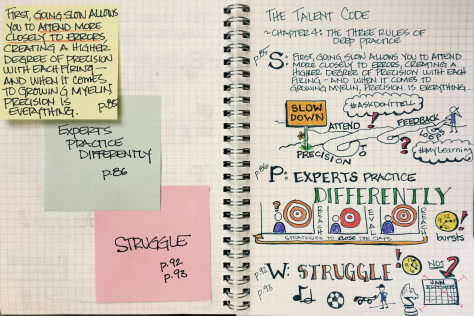 FIRST, GOING SLOW ALLOWS
YOU TO ATTEND MORE
CLOSELY TO ERRORS,
CREATING A HIGHER
DEGREE OF PRECISION
WITH EACH FIRING—
AND WHEN IT COMES
TO GROWING MYELIN,
PRECISION IS
EVERYTHING.
p.85
EXPERTS
PRACTICE
DIFFERENTLY
p.86
STRUGGLE
p.92
p.93
THE TALENT CODE
~CHAPTER 4: THE THREE RULES OF
DEEP PRACTICE
p.85
S: FIRST, GOING SLOW ALLOWS YOU TO ATTEND
MORE CLOSELY TO ERRORS, CREATING A
HIGHER DEGREE OF PRECISION WITH EACH
FIRING—AND WHEN IT COMES TO
GROWING MYELIN, PRECISION IS EVERYTHING.
SLOW
DOWN
#ASKDON'TTELL
ATTEND
FEEDBACK
LOOPS
TO
PRECISION
#MyLearning
p.86
P: EXPERTS PRACTICE
DIFFERENTLY
REACH
EVAL
REACH
STRATEGIES TO CLOSE THE GAPS
bursts
p.92
p.93
W: STRUGGLE!
NOT
JAN